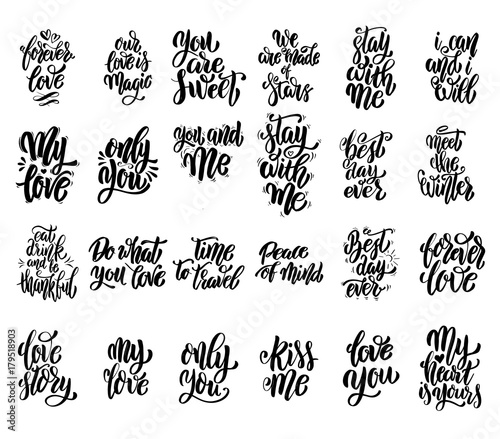 forever
love
our
love is
magic
You
are
Sweet
We
are made
of
stars
stay
with
me
i can
and i
will
My
love
only
you
you and
Me
stay
with
me
best
day
ever
meet
the
winter
eat
drink
and be
thankful
Do what
you love
Time
to travel
Peace
of mind
Best
day
ever
forever
love
love
story
my
love
only
you
kiss
me
love
you
My
heart
is yours
Adobe Stock | #179518903